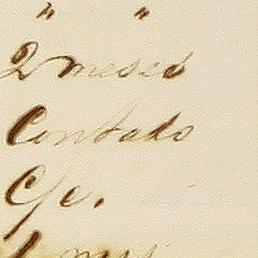 " "
2 meses
Contado
C/c.